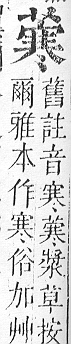 蔊
舊註音寒蔊漿草按
爾雅本作寒俗加艸